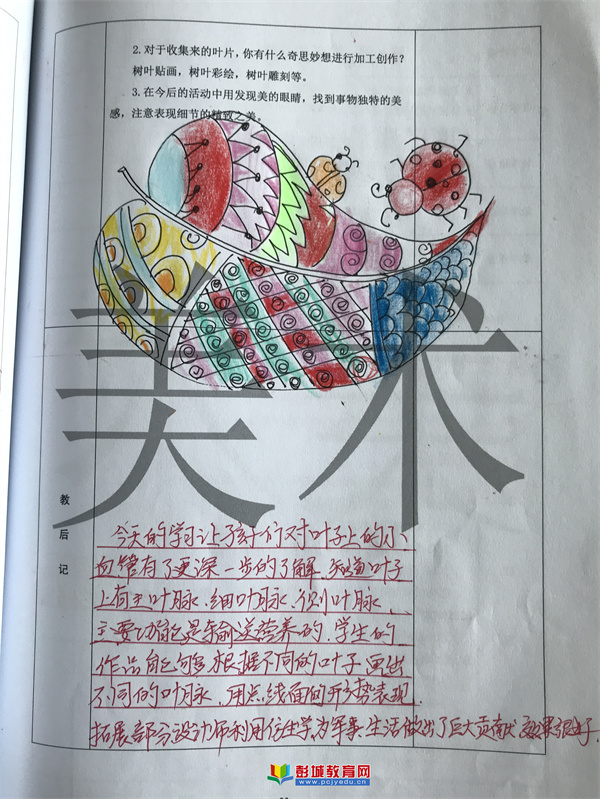 2. 对于收集来的叶片，你有什么奇思妙想进行加工创作？
树叶贴画，树叶彩绘，树叶雕刻等。
3. 在今后的活动中用发现美的眼睛，找到事物独特的美
感，注意表现细节的精致之美。
美术
教后记
今天的学习让孩子们对叶子上的小
血管有了更深一步的了解，知道叶子
上有主叶脉、细叶脉、侧叶脉，
主要功能是输送营养的，学生的
作品能够根据不同的叶子画出
不同的叶脉，用点线面的形势表现.
拓展部分设计师利用仿生学为军事、生活做出了巨大贡献 效果很好.
彭城教育网
www.pcjyedu.com